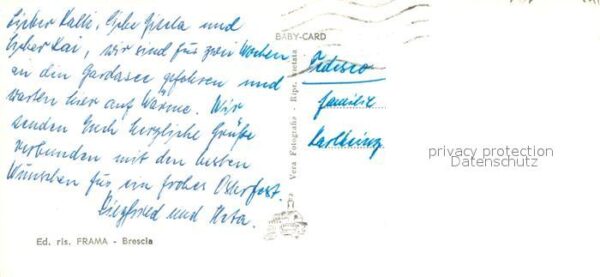 Lieber Kalli, liebe Gisela und
lieber Kai, wir sind für zwei Wochen
an den Gardasee gefahren und
warten hier auf Wärme. Wir
senden Euch herzliche Grüße
verbunden mit den besten
Wünschen für ein frohes Osterfest.
Siegfried und
Ed. ris. FRAMA - Brescia
BABY-CARD
Vera Fotografia - Ripr. vietata
Tedesco
Familie
Karlheinz
privacy protection
Datenschutz